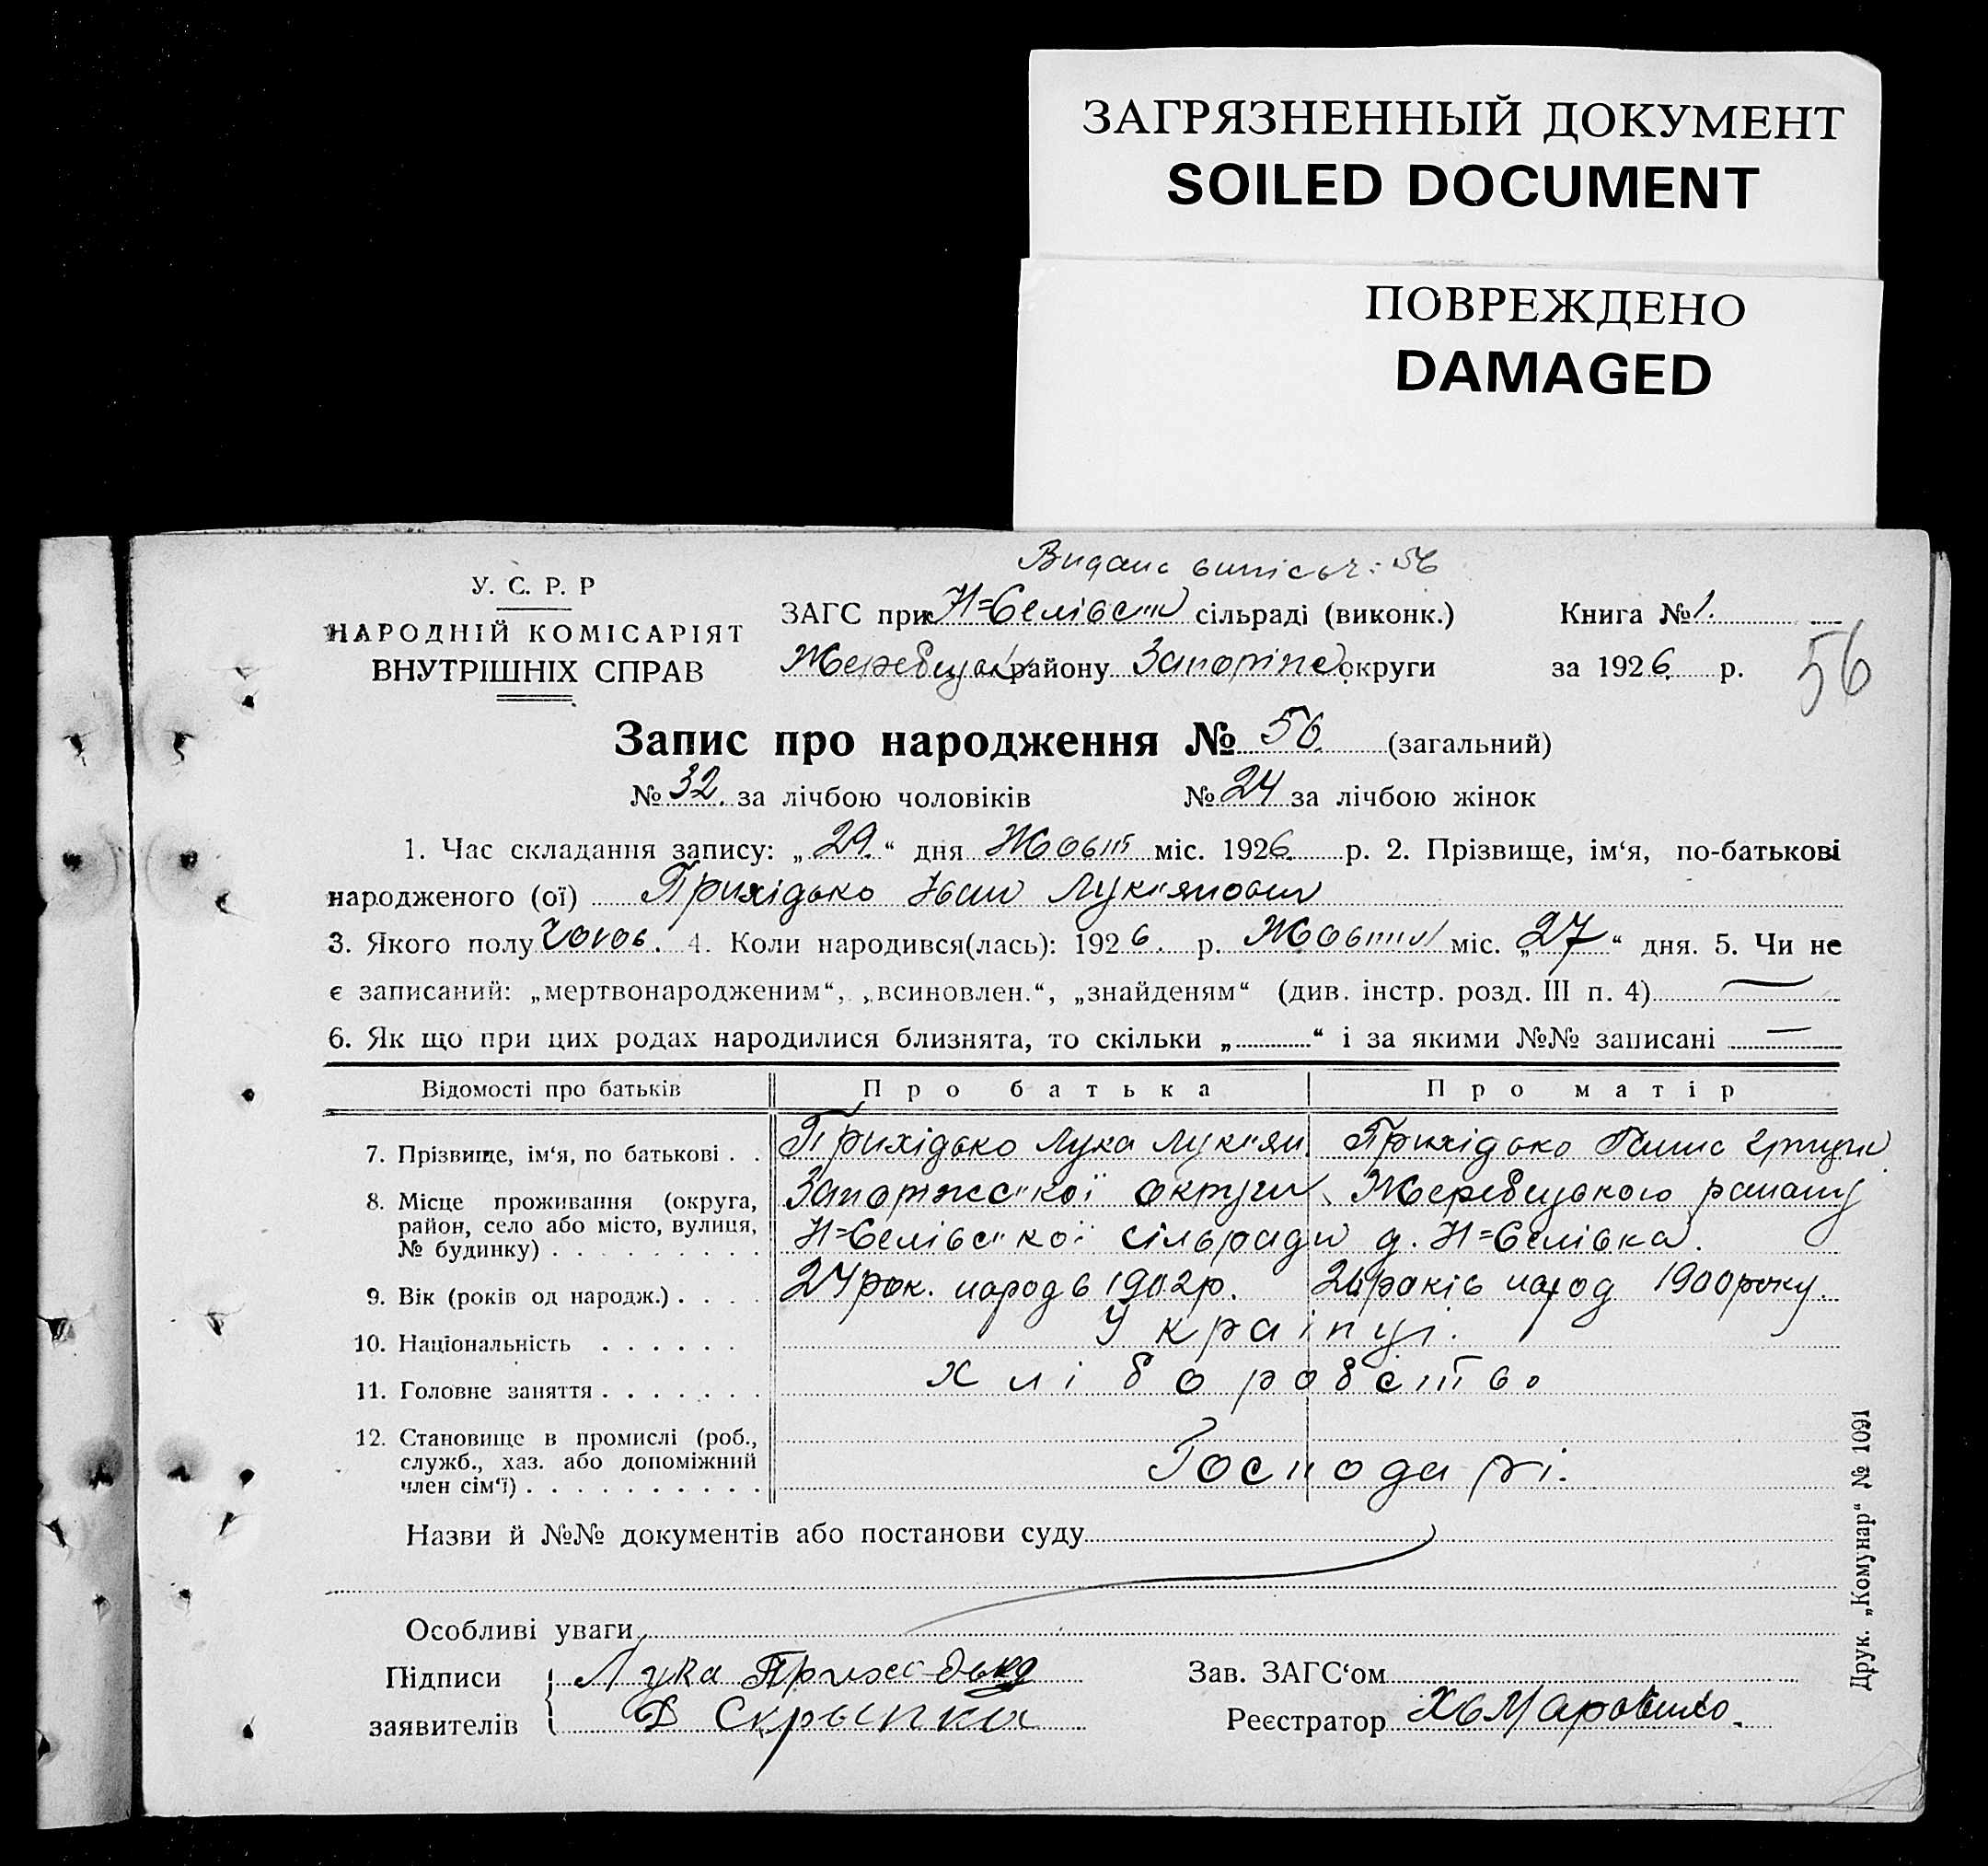 ЗАГРЯЗНЕННЫЙ ДОКУМЕНТ
SOILED DOCUMENT
ПОВРЕЖДЕНО
DAMAGED
Видано випись ч: 56
У. С. Р. Р
НАРОДНІЙ КОМІСАРІЯТ
ВНУТРІШНІХ СПРАВ
ЗАГС при Н=Єелівськ сільраді (виконк.)
Жеребецьк району Запоріже округи
Книга № 1.
за 1926 р.
56
Запис про народження № 56. (загальний)
№ 32. за лічбою чоловіків № 24 за лічбою жінок
1. Час складання запису: „29.“ дня Жовт міс. 1926 р. 2. Прізвище, ім‘я, по-батькові
народженого (ої) Прихідько Іван Лук"янович
3. Якого полу чолов. 4. Коли народився(лась): 1926. р. Жовтня міс. „27“ дня. 5. Чи не
є записаний: „мертвонародженим“, „всиновлен.“, „знайденям“ (див. інстр. розд. III п. 4) —
6. Як що при цих родах народилися близнята, то скільки „ “ і за якими №№ записані —
Відомості про батьків Про батька Про матір
7. Прізвище, ім‘я, по батькові . . Прихідько Лука Лук"ян. Прихідько
8. Місце проживання (округа, район, село або місто, вулиця, № будинку) . . . . . . . . .
Запоріжс"кої округи Жеребецького району
Н=Єелівс"кої сільради д. Н=Єелівка.
9. Вік (років од народж.) . . . . 24 рок. народ в 1902 р. 26 років народ 1900 року.
10. Національність . . . . . . Українці.
11. Головне заняття . . . . . . . хліборобство
12. Становище в промислі (роб., служб., хаз. або допоміжний член сім‘ї) . . . . . . . . . . Господарі.
Назви й №№ документів або постанови суду
Особливі уваги
Підписи заявителів
Лука Прихидько
Д Скрыпка
Зав. ЗАГС‘ом
Реєстратор
Друк. „Комунар“ № 1091